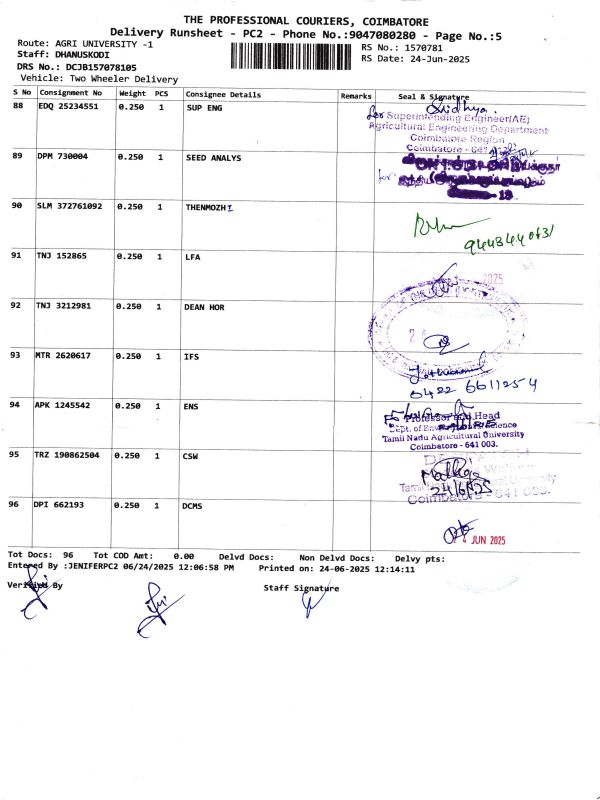 THE PROFESSIONAL COURIERS, COIMBATORE
Delivery Runsheet - PC2 - Phone No.:9047080280 - Page No.:5
Route: AGRI UNIVERSITY -1
RS No.: 1570781
Staff: DHANUSKODI
RS Date: 24-Jun-2025
DRS No.: DCJB157078105
Vehicle: Two Wheeler Delivery
S No Consignment No Weight PCS Consignee Details Remarks Seal & Signature
88 EDQ 25234551 0.250 1 SUP ENG
Sridhya
for Superintending Engineer(AE)
Agricultural Engineering Department
Coimbatore Region
Coimbatore - 641
89 DPM 730004 0.250 1 SEED ANALYS
for
90 SLM 372761092 0.250 1 THENMOZHI
91 TNJ 152865 0.250 1 LFA
2025
92 TNJ 3212981 0.250 1 DEAN HOR
93 MTR 2620617 0.250 1 IFS
0422 6611254
94 APK 1245542 0.250 1 ENS
Professor and Head
Dept. of Environmental Science
Tamil Nadu Agricultural University
Coimbatore - 641 003.
95 TRZ 190862504 0.250 1 CSW
24/6/25
Coimbatore - 641 003.
96 DPI 662193 0.250 1 DCMS
JUN 2025
Tot Docs: 96 Tot COD Amt: 0.00 Delvd Docs: Non Delvd Docs: Delvy pts:
Entered By :JENIFERPC2 06/24/2025 12:06:58 PM Printed on: 24-06-2025 12:14:11
Verified By
Staff Signature